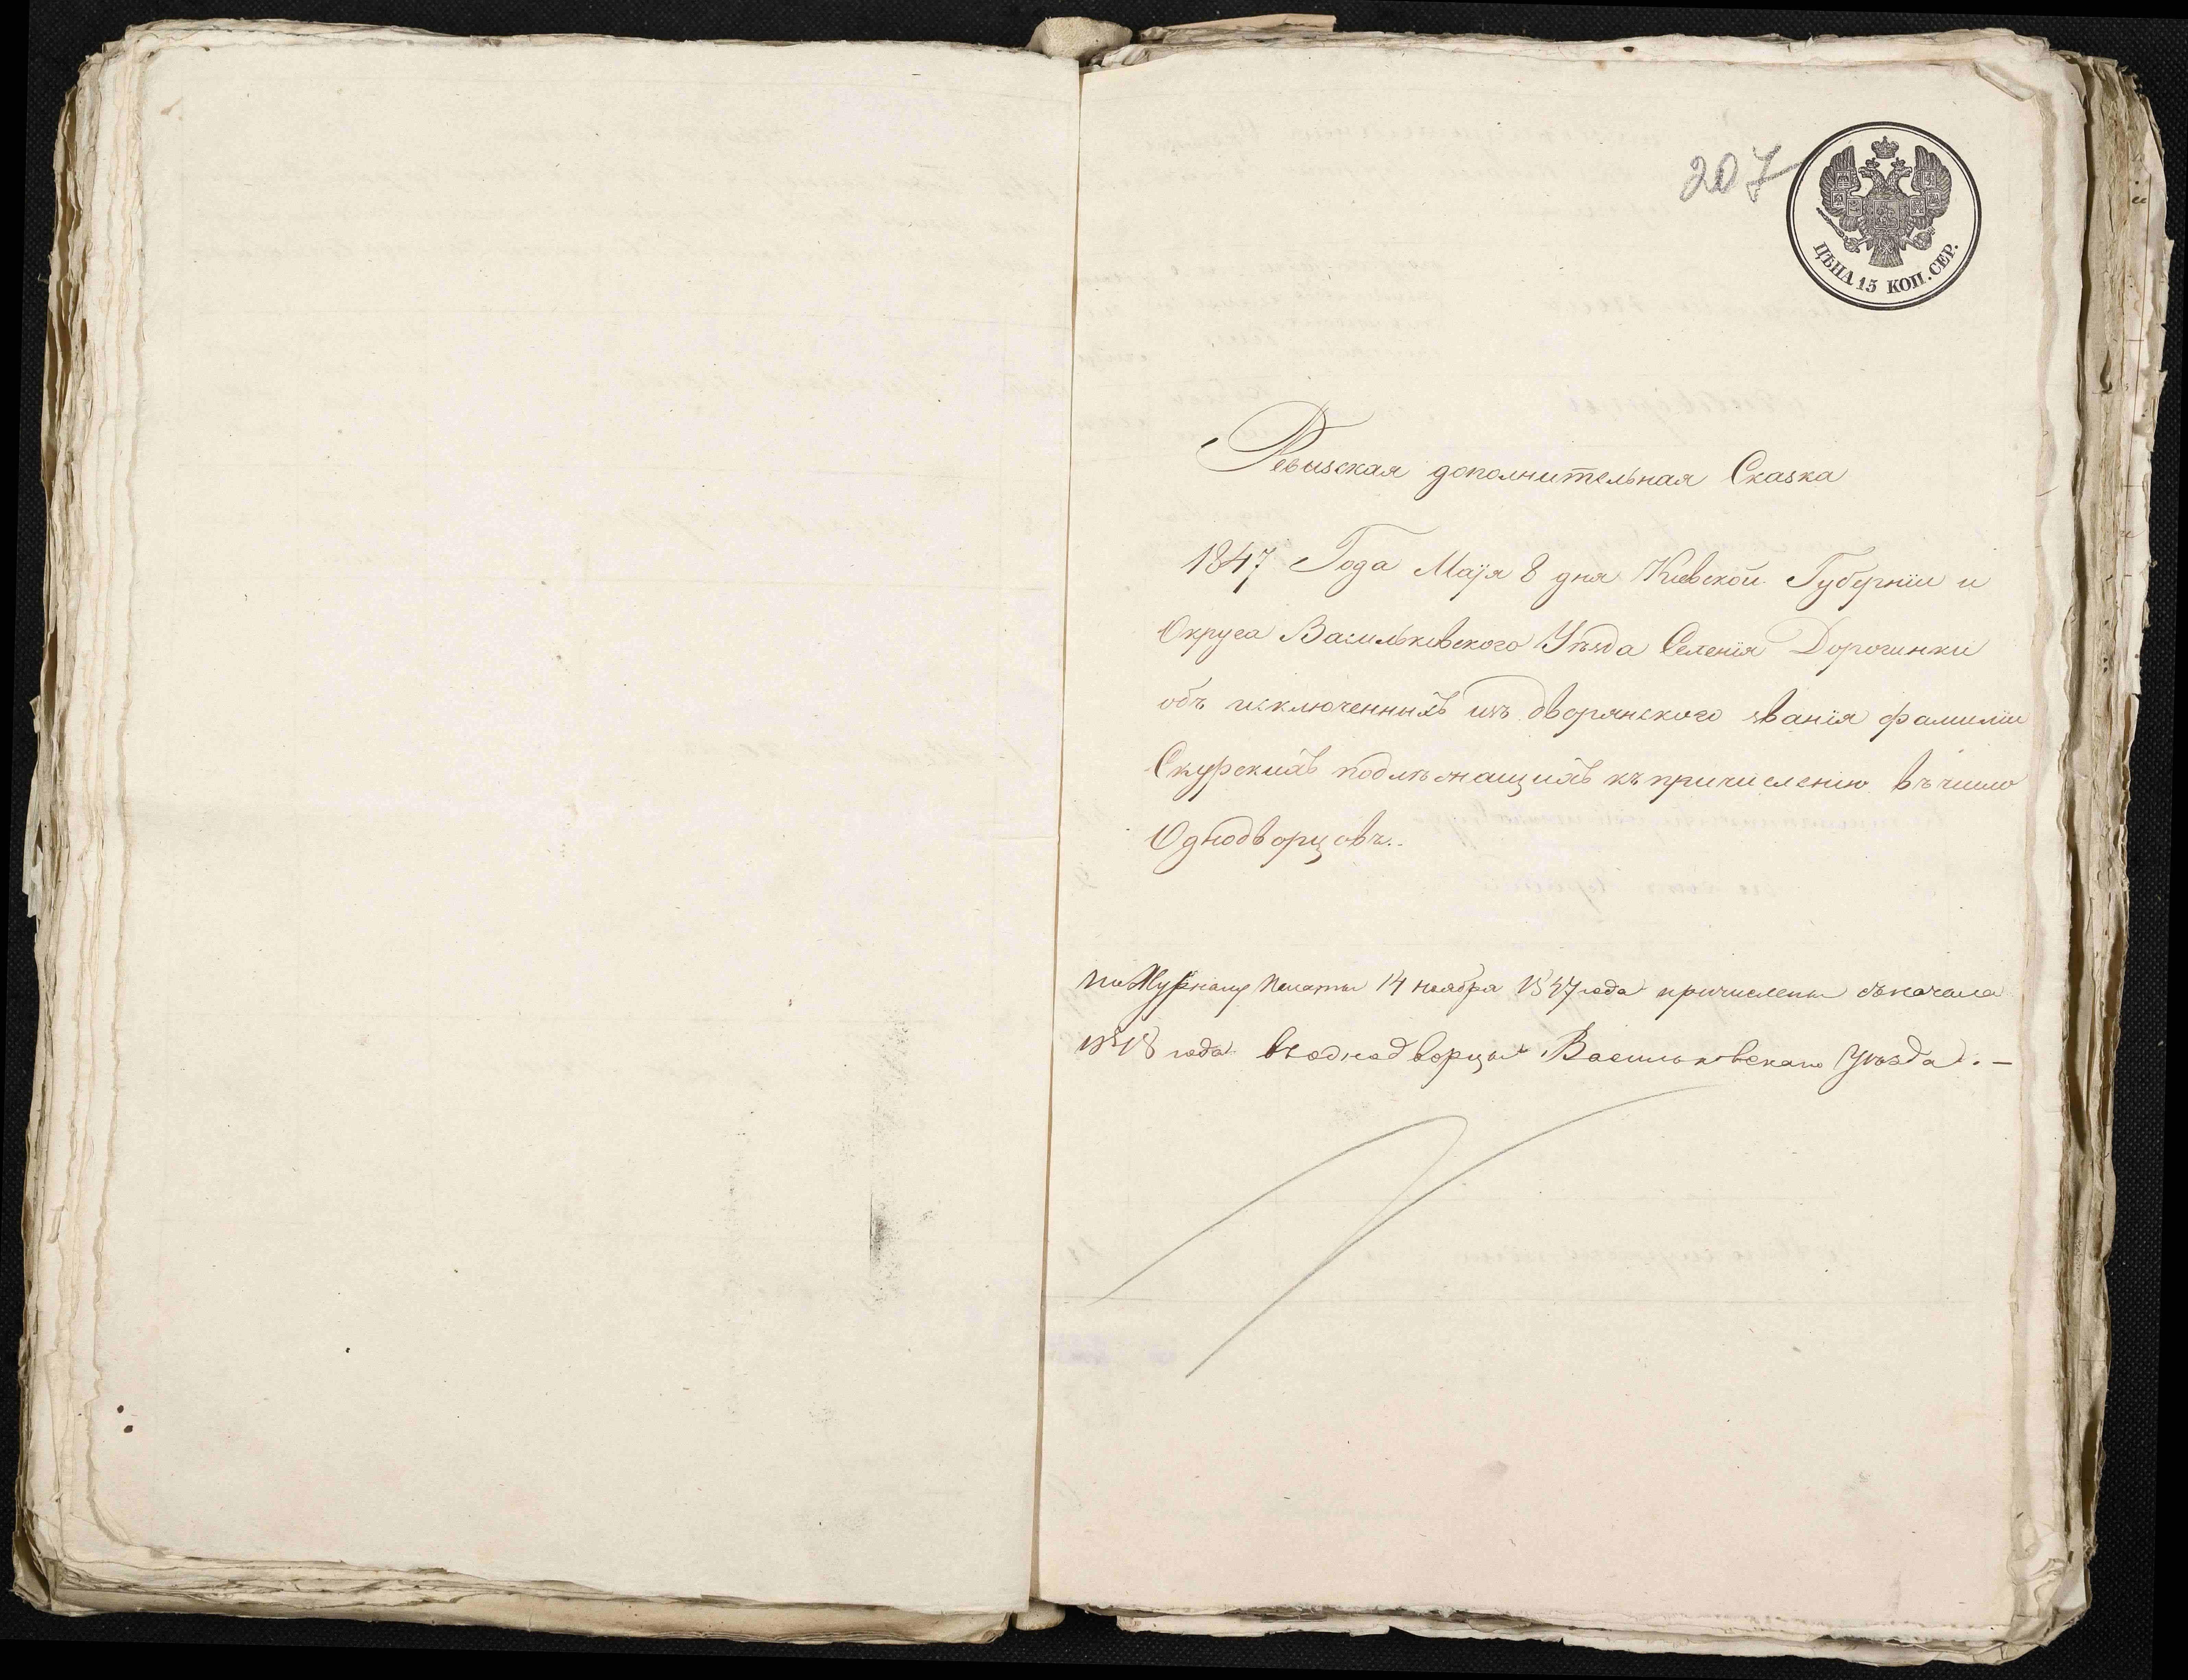 207
ЦѢНА 15 КОП. СЕР.
Ревизская дополнительная Сказка
1847 Года Маія 8 дня Кіевской Губерніи и
Округа Васильковского Уѣзда Селенія Дорогинки
объ исключенныхъ изъ дворянского званія фамиліи
Скурскихъ подлѣжащихъ къ причисленію въ число
Однодворцовъ.
По Журналу Палаты 14 ноября 1847 года причислены съ начала
1848 года въ однодворцы Васильковскаго Уѣзда. —